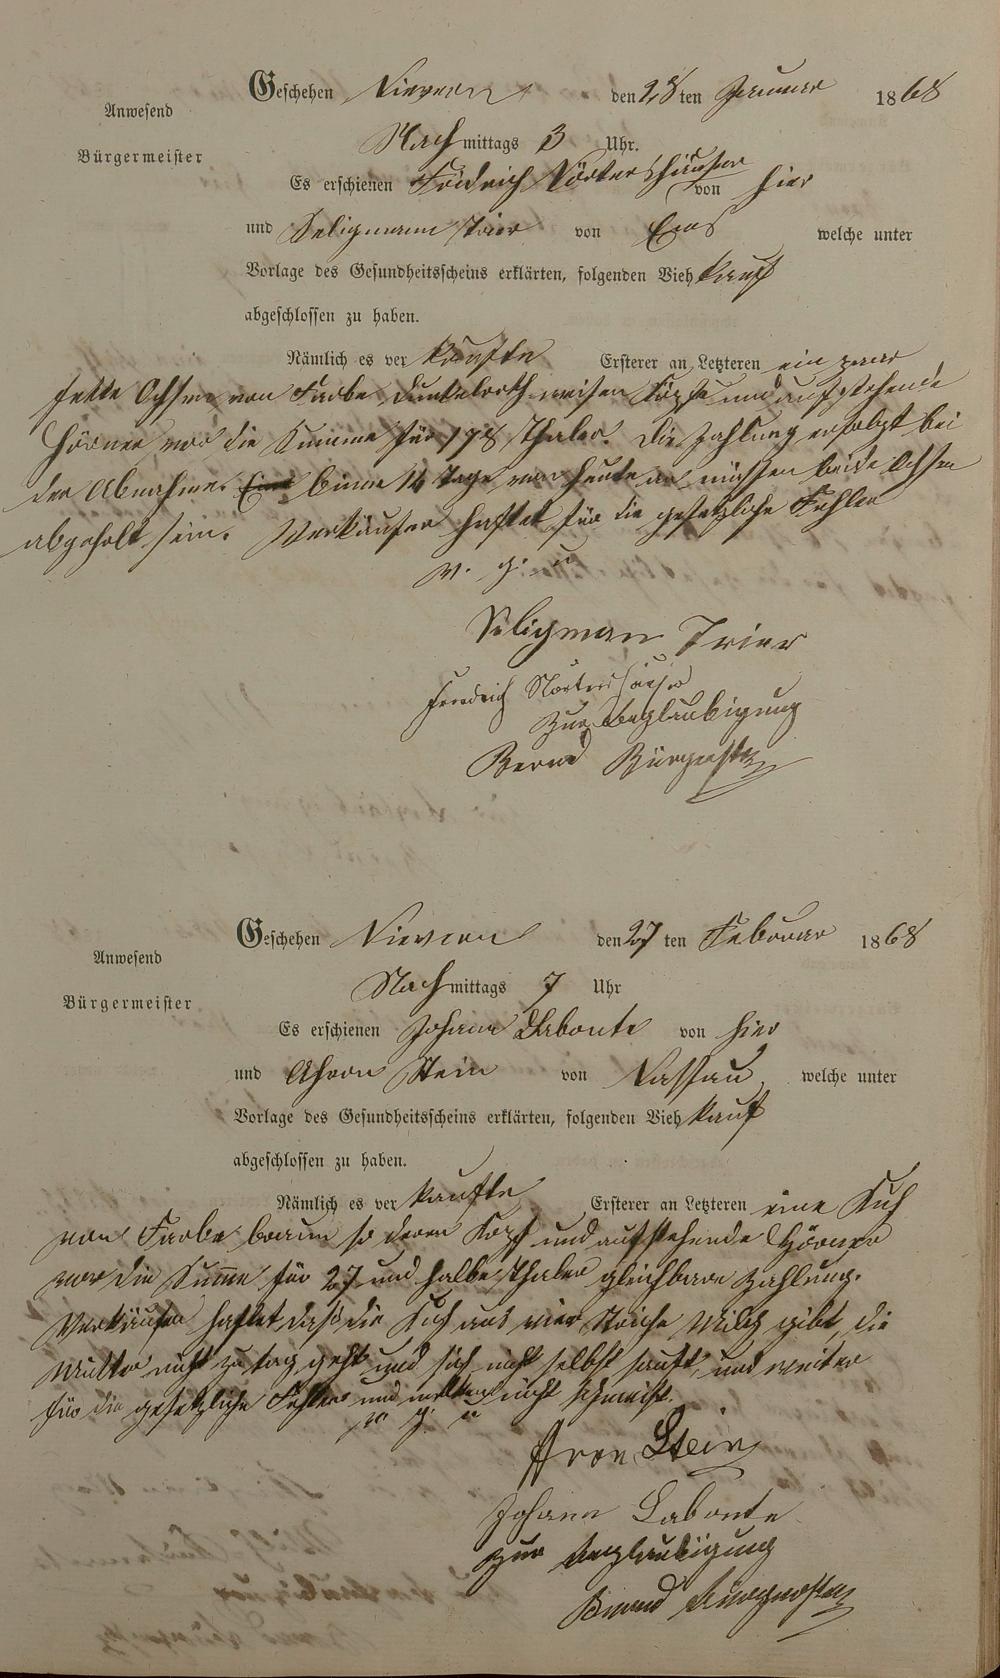 Geschehen Nievern den 28 ten Januar 1868
Anwesend
Nachmittags 3 Uhr.
Bürgermeister
Es erschienen Friedrich Nörtershäuser von hier
und Seligmann Trier von Ems welche unter
Vorlage des Gesundheitsscheins erklärten, folgenden Viehkauf
abgeschlossen zu haben.
Nämlich es verkaufte Ersterer an Letzteren ein paar
fette Ochsen von Farbe dunkelroth weisen Köpfe und aufstehende
Hörner vor die Summe für 178 Thaler. Die Zahlung erfolgt bei
der Abnahme. binne 14 Tage von heute an müssen beide Ochsen
abgeholt sein. Verkäufer haftet für die gesetzliche Fehler
v. g. u
Seligman Trier
Friedrich Nörtershäuser
Zur Beglaubigung
Bernd Bürgerstr
Geschehen Nievern den 27 ten Februar 1868
Anwesend
Nachmittags 7 Uhr
Bürgermeister
Es erschienen Johann Labonte von hier
und Ahron Stein von Nassau welche unter
Vorlage des Gesundheitsscheins erklärten, folgenden Viehkauf
abgeschlossen zu haben.
Nämlich es verkaufte Ersterer an Letzteren eine Kuh
von Farbe braun so deren Kopf und aufstehende Hörner
vor die Summe für 27 und halbe Thaler gleichbare Zahlung.
Verkäufer haftet, daß die Kuh aus vier Striche Milch gibt, die
Mutter nicht zu tag geht und sich nicht selbst sauft, und weiter
für die gesetzliche Fehler und nicht
v. g. u
Aron Stein
Johann Labonte
Zur Beglaubigung
Bernd Bürgermstr